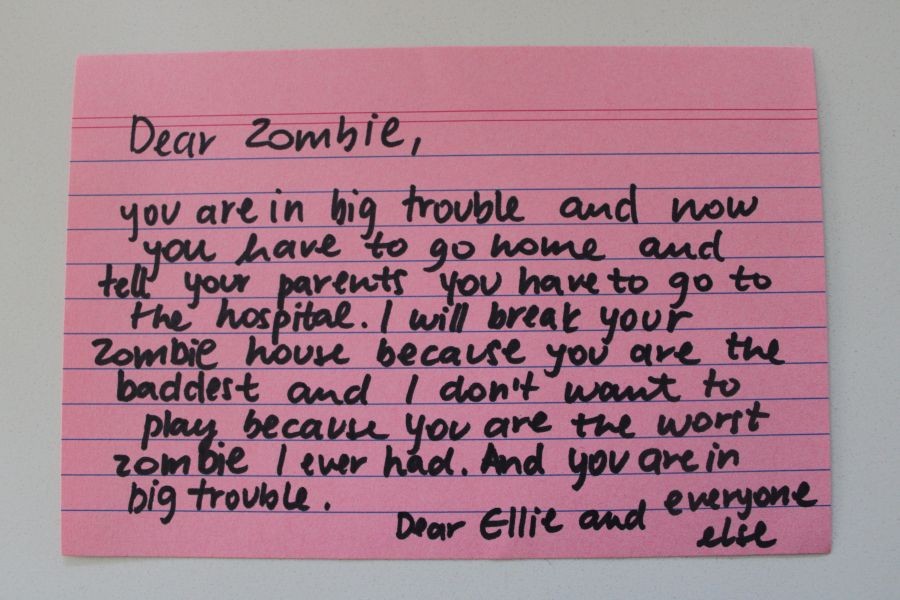 Dear Zombie,
you are in big trouble and now
you have to go home and
tell your parents you have to go to
the hospital. I will break your
zombie house because you are the
baddest and I don't want to
play because you are the worst
zombie I ever had. And you are in
big trouble.
Dear Ellie and everyone
else